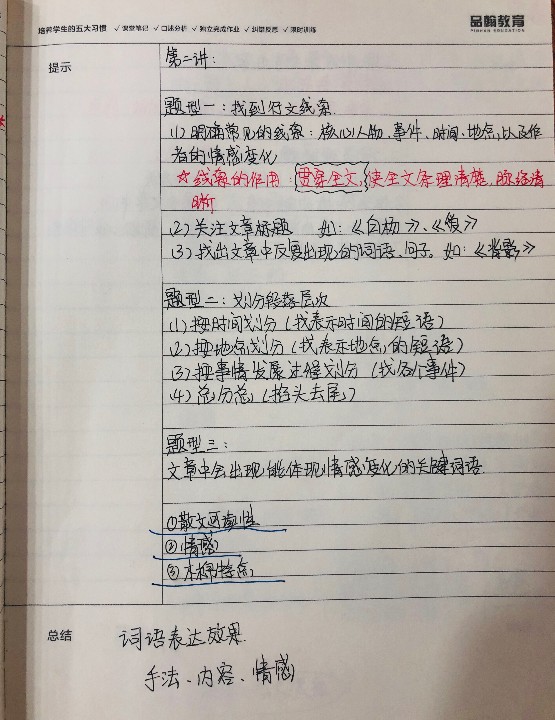 培养学生的五大习惯 ✓课堂笔记 ✓口述分析 ✓独立完成作业 ✓纠错反思 ✓限时训练
品翰教育
PINHAN EDUCATION
提示
第二讲：
题型一：找到行文线索
(1) 明确常见的线索：核心人物、事件、时间、地点，以及作
者的情感变化
☆线索的作用：贯穿全文，使全文条理清楚，脉络清
晰
(2) 关注文章标题 如：《白杨》、《爱》
(3) 找出文章中反复出现的词语、句子。如：《背影》
题型二：划分段落层次
(1) 按时间划分（找表示时间的短语）
(2) 按地点划分（找表示地点的短语）
(3) 按事情发展过程划分（找各个事件）
(4) 总分总（掐头去尾）
题型三：
文章中会出现能体现情感变化的关键词语
①散文可读性
②情感
③木棉特点
总结
词语表达效果
手法、内容、情感